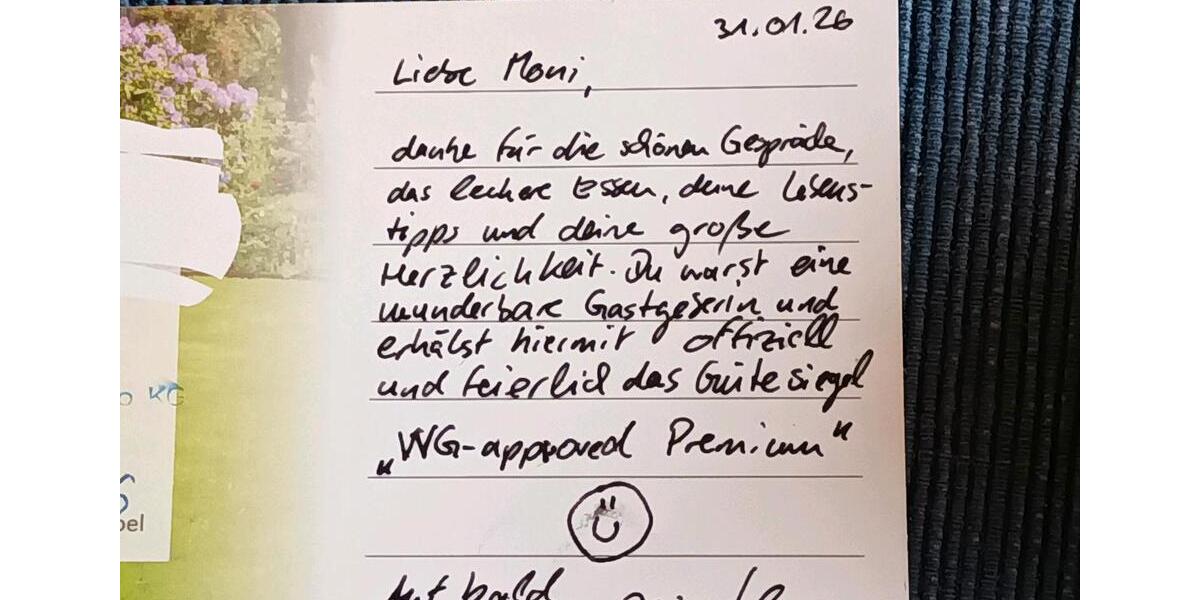 31.01.26
Liebe Moni,
danke für die schönen Gespräche,
das leckere Essen, deine Lebens-
tipps und deine große
Herzlichkeit. Du warst eine
wunderbare Gastgeberin und
erhälst hiermit offiziell
und feierlich das Gütesiegel
„WG-approved Premium"
KG
bel
bald